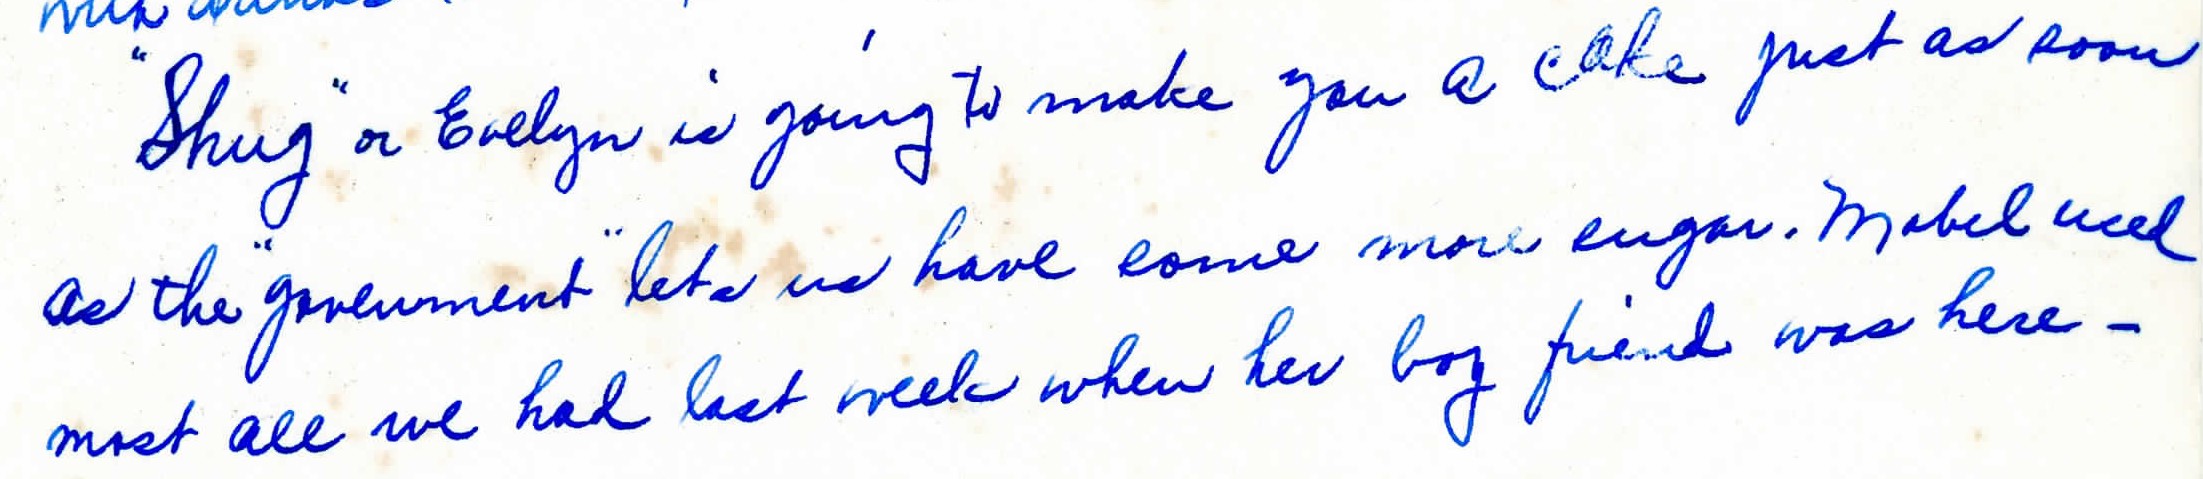 "Shug" or Evelyn is going to make you a cake just as soon
as the "government" lets us have some more sugar. Mabel used
most all we had last week when her boy friend was here -